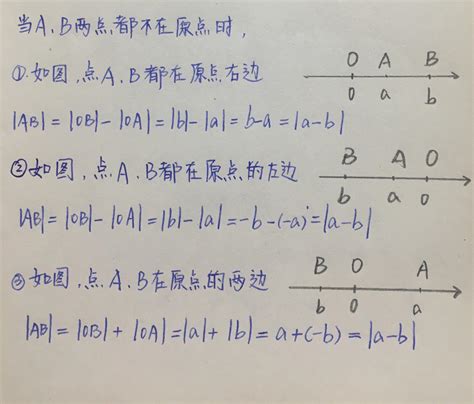 当A、B两点都不在原点时,
①如图,点A、B都在原点右边
O A B
0 a b
|AB|=|OB|-|OA|=|b|-|a|=b-a=|a-b|
②如图,点A、B都在原点的左边
B A O
b a 0
|AB|=|OB|-|OA|=|b|-|a|=-b-(-a)=|a-b|
③如图,点A、B在原点的两边
B O A
b 0 a
|AB|=|OB|+|OA|=|a|+|b|=a+(-b)=|a-b|